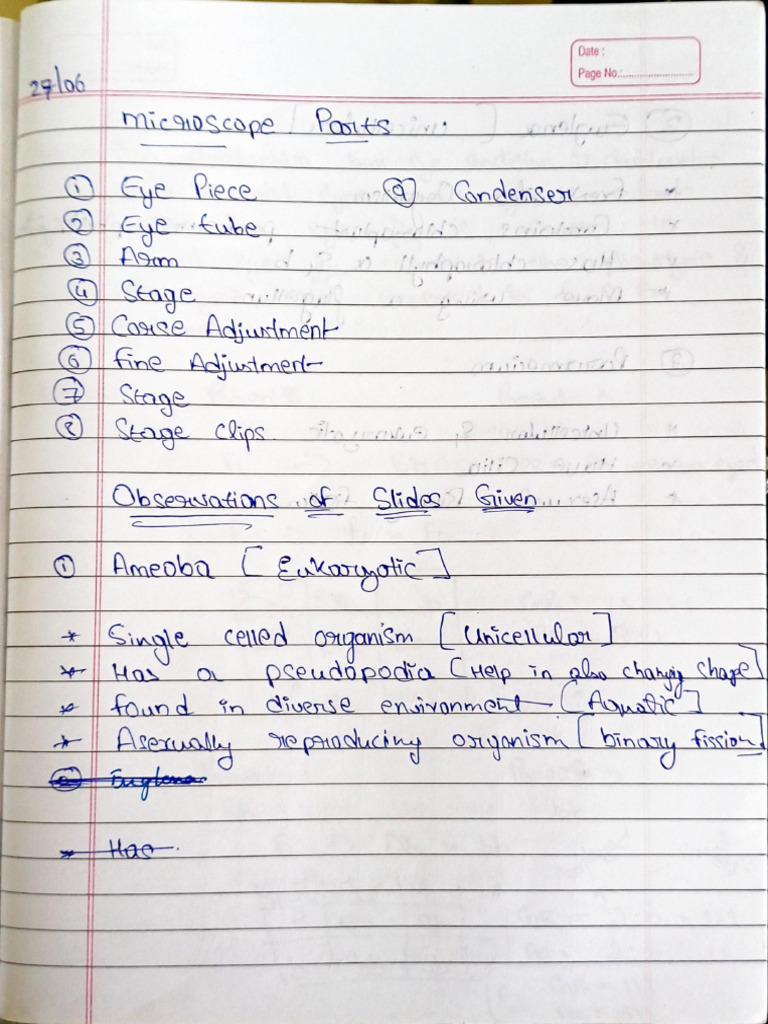 Date :
Page No.:
27/06
Microscope Parts
① Eye Piece ⑨ Condenser
② Eye tube
③ Arm
④ Stage
⑤ Corse Adjustment
⑥ Fine Adjustment
⑦ Stage
⑧ Stage Clips
Observations of Slides Given
① Ameoba [Eukaryotic]
* Single celled organism [Unicellular]
* Has a pseudopodia [Help in also changing shape]
* found in diverse environment [Aquatic]
* Asexually reproducing organism [binary fission]
② Euglena
* Has